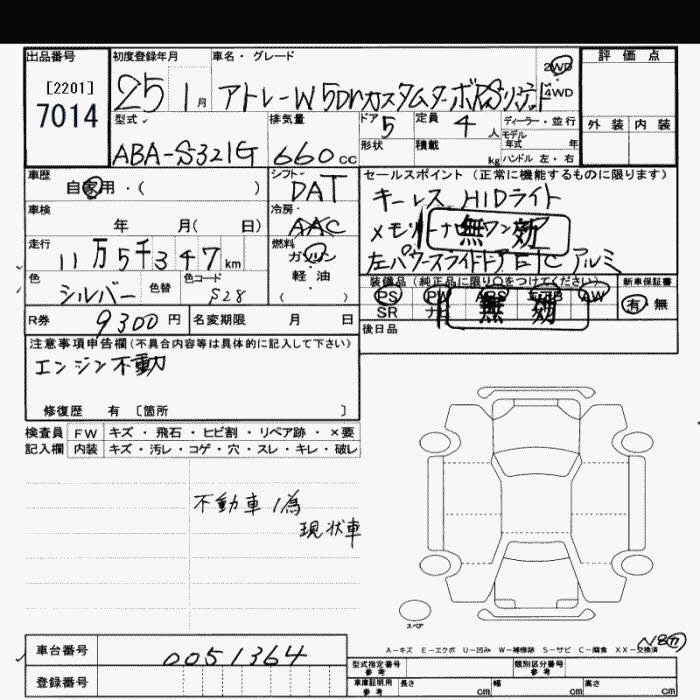 出品番号 初度登録年月 車名・グレード 評価点
[2201] 25 1月 アトレーW 5Dr カスタムターボRSリミテッド 2WD
7014 4WD
型式 排気量 ドア 5 定員 4人 ディーラー・並行 外装 内装
モデル
年式 年
ABA-S321G 660cc 形状 積載 kg ハンドル 左・右
車歴 シフト セールスポイント(正常に機能するものに限ります)
自家用・( ) DAT キーレス HIDライト
車検 冷房
年 月( 日) AAC メモリーナビ ワンセグ 無効
走行 燃料
11万5千347km ガソリン 左パワースライドドア ETC アルミ
軽・油
色 色替 色コード ( ) 装備品(純正品に限り〇をつけてください) 新車保証書
シルバー S28 PS PW ABS エアB AW 有 無
SR ナビ 無効
R券 9300円 名変期限 月 日 後日品
注意事項申告欄(不具合内容等は具体的に記入して下さい)
エンジン不動
修復歴 有 〔箇所 〕
検査員 FW キズ・飛石・ヒビ割・リペア跡・×要
記入欄 内装 キズ・汚レ・コゲ・穴・スレ・キレ・破レ
不動車ノ為
現状車
スペア
A-キズ E-エクボ U-凹み W-補修跡 S-サビ C-腐食 XX-交換済
車台番号 0051364
登録番号
型式指定番号 参考 類別区分番号 参考
車庫証明用 参考 長さ cm 幅 cm 高さ cm